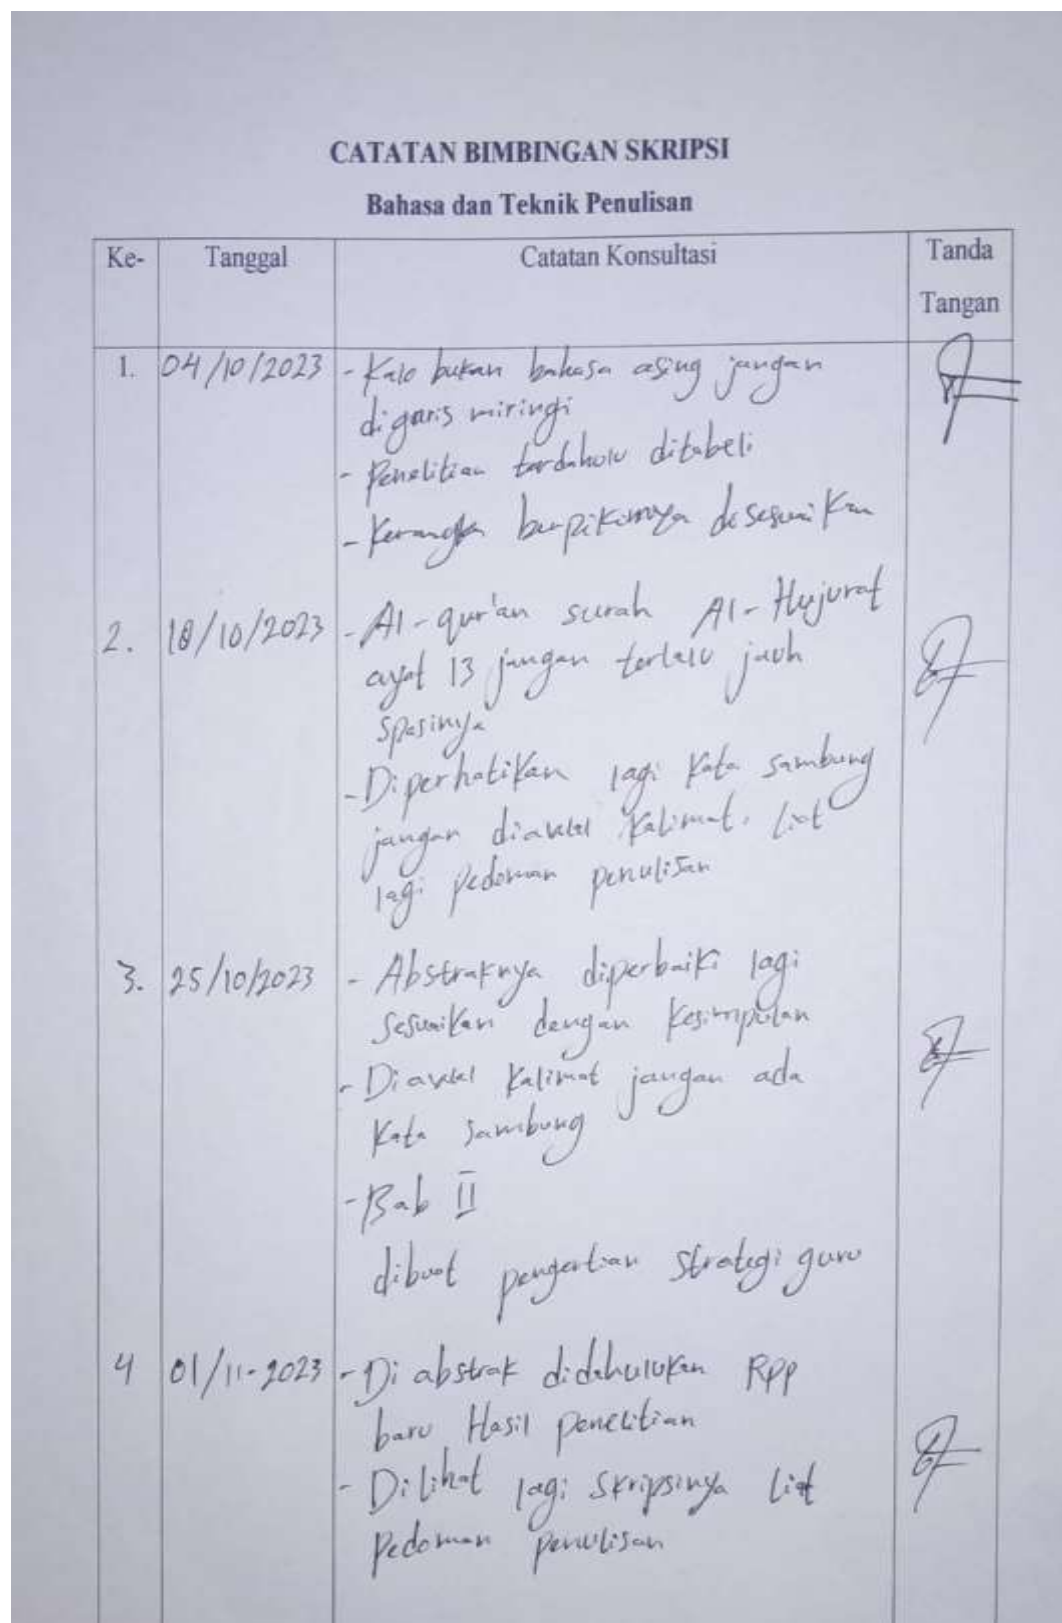 CATATAN BIMBINGAN SKRIPSI
Bahasa dan Teknik Penulisan
Ke- Tanggal Catatan Konsultasi Tanda
Tangan
1. 04/10/2023 - Kalo bukan bahasa asing jangan
digaris miringi
- Penelitian terdahulu ditabeli
- Kerangka berpikirnya disesuaikan
2. 18/10/2023 - Al-qur'an surah Al-Hujurat
ayat 13 jangan terlalu jauh
spasinya
- Diperhatikan lagi kata sambung
jangan diawal kalimat. liat
lagi pedoman penulisan
3. 25/10/2023 - Abstraknya diperbaiki lagi
sesuaikan dengan kesimpulan
- Diawal kalimat jangan ada
kata sambung
- Bab II
dibuat pengertian strategi guru
4 01/11-2023 - Di abstrak didahulukan RPP
baru Hasil penelitian
- Dilihat lagi skripsinya liat
pedoman penulisan